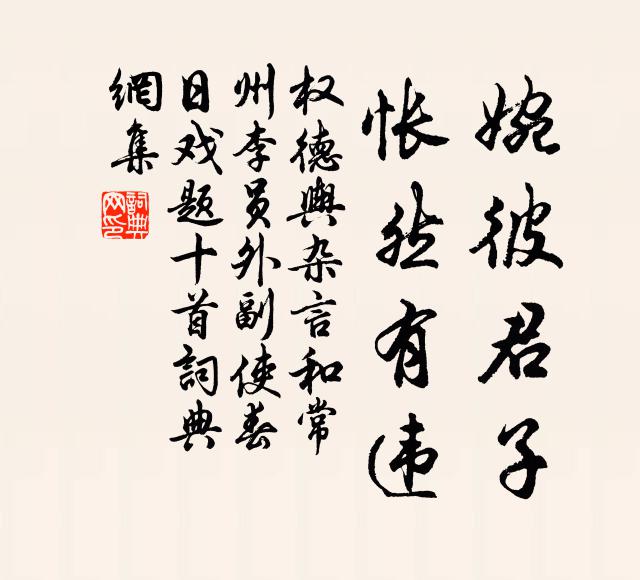 婉彼君子
怅然有违
权德輿杂言和常
州李员外副使春
日戏题十首詞典
網集
詞典
网印